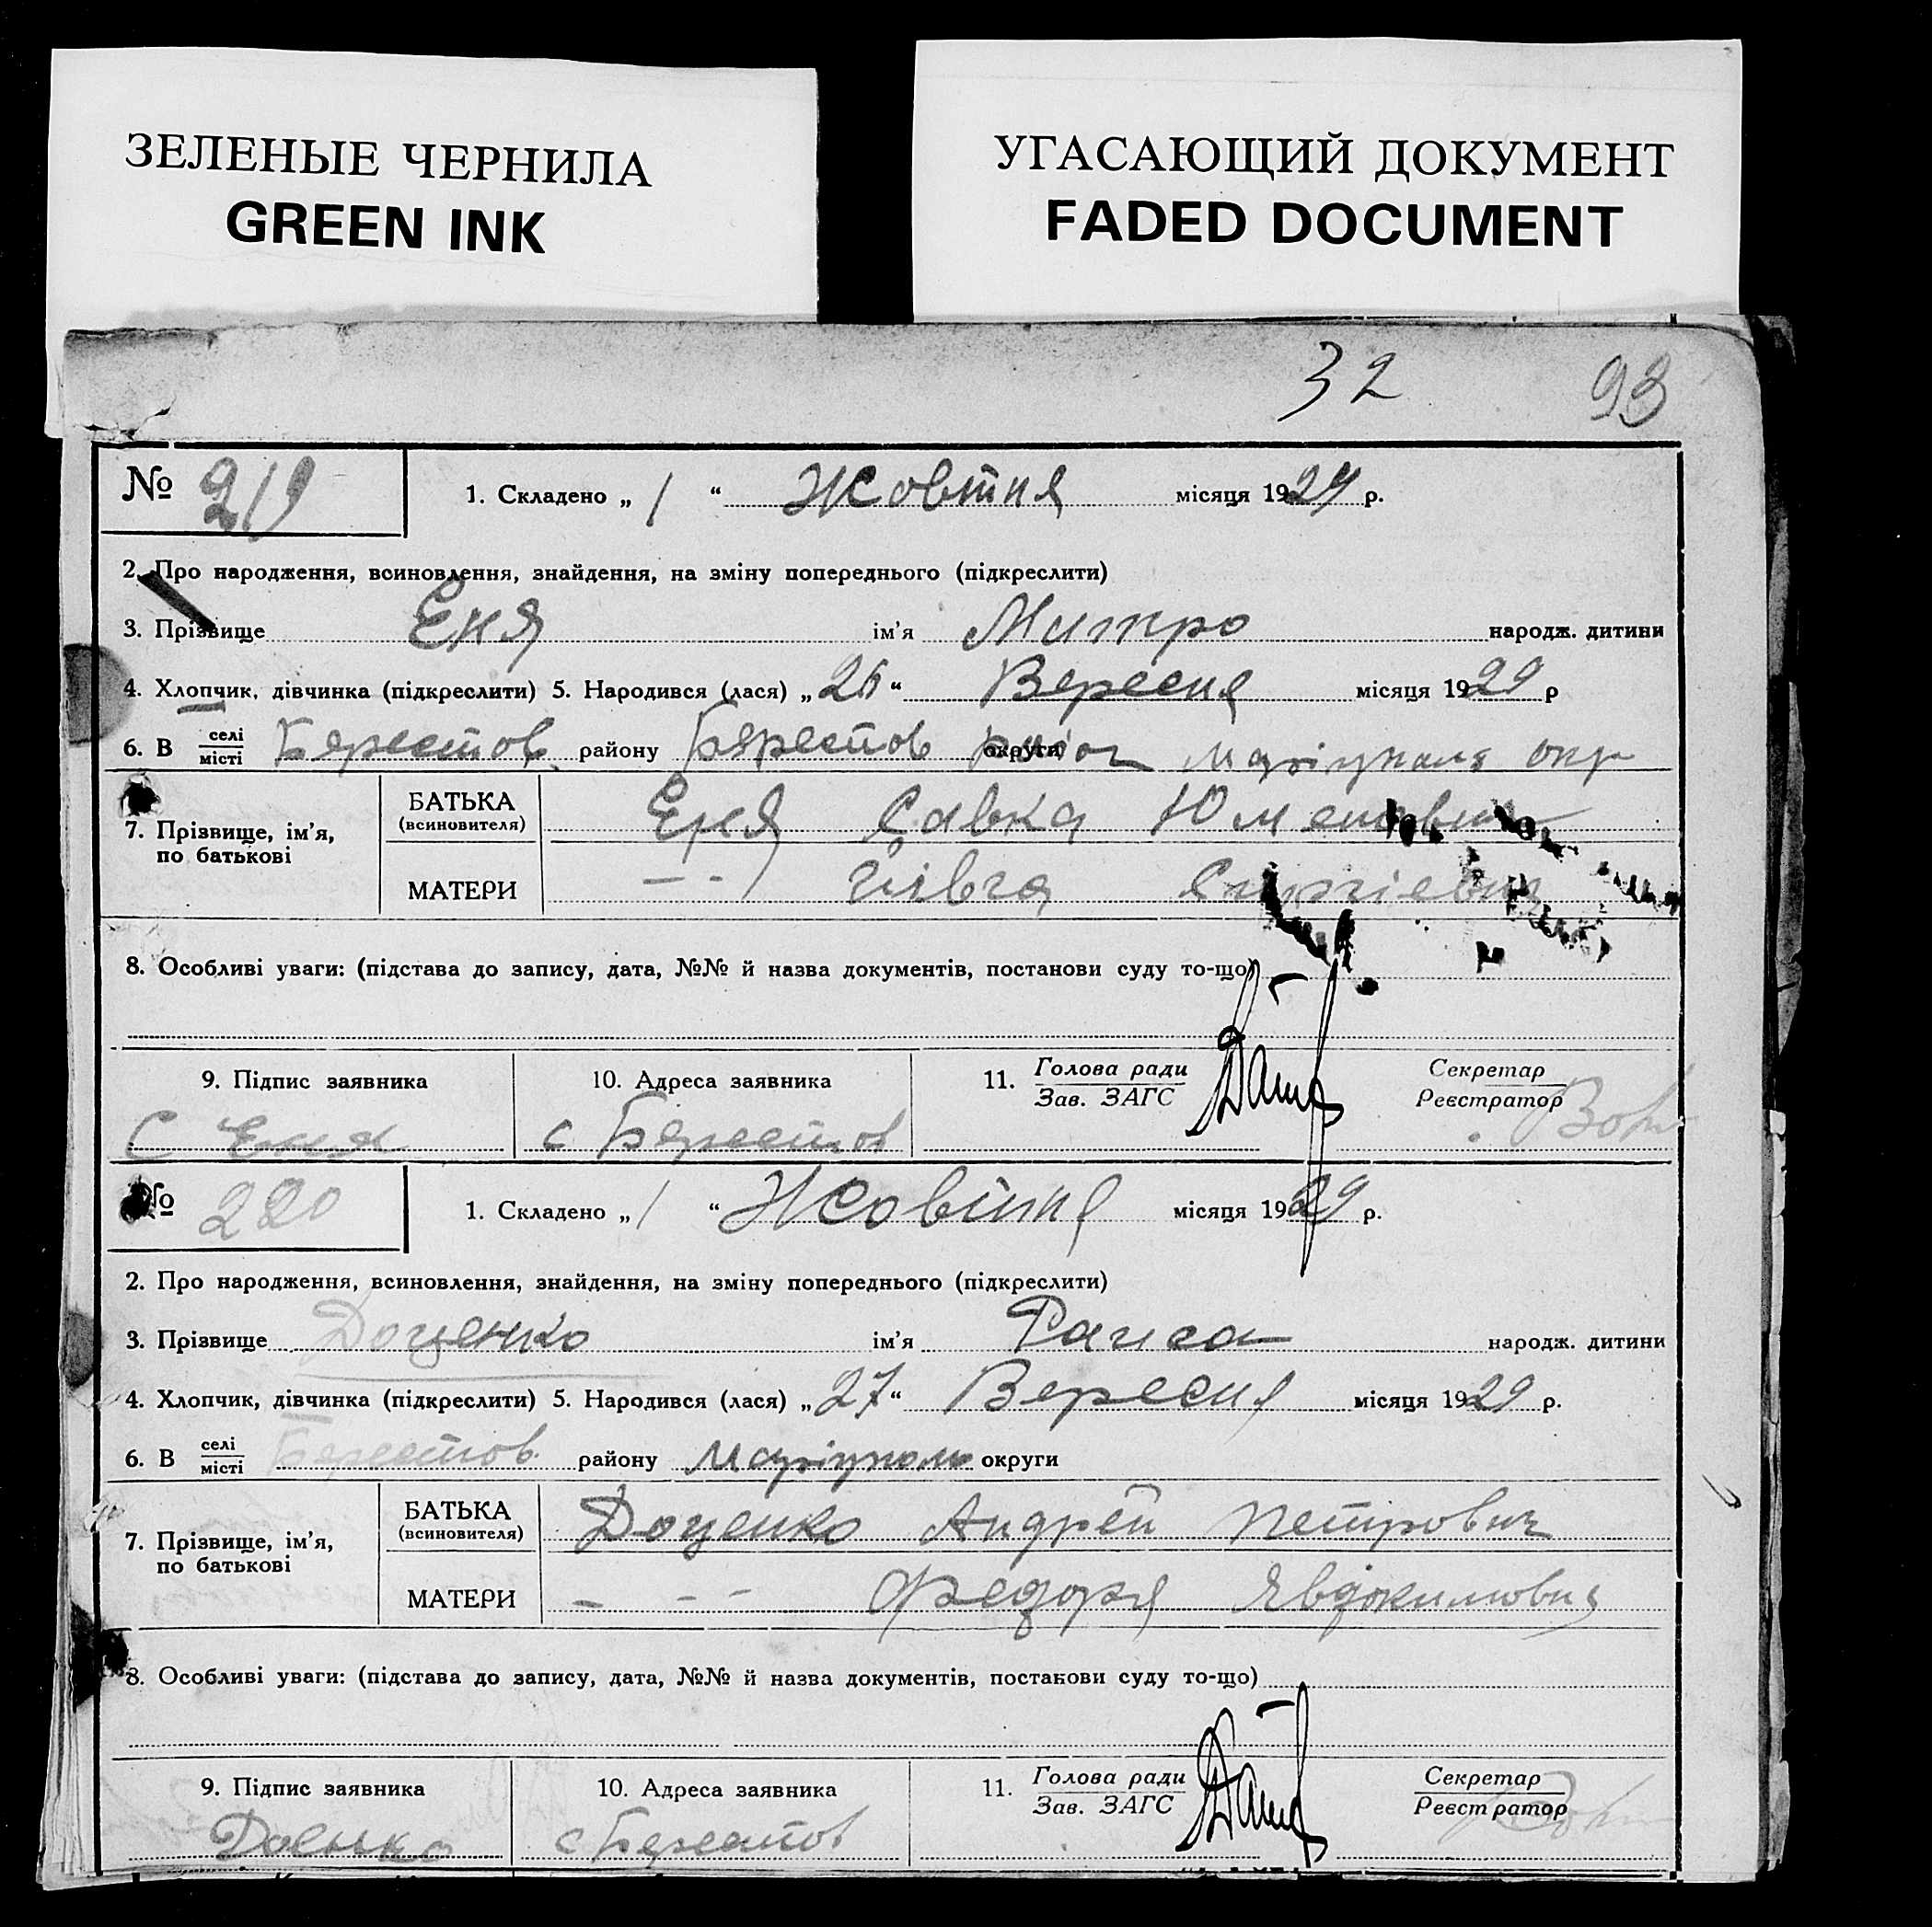 ЗЕЛЕНЫЕ ЧЕРНИЛА
GREEN INK
УГАСАЮЩИЙ ДОКУМЕНТ
FADED DOCUMENT
32 93
№ 219 1. Складено „ 1 “ Жовтня місяця 1929 р.
2. Про народження, всиновлення, знайдення, на зміну попереднього (підкреслити)
3. Прізвище Еня ім'я Митро народж. дитини
4. Хлопчик, дівчинка (підкреслити) 5. Народився (лася) „ 26 “ Вересня місяця 1929 р
6. В селі/місті Берестов. району Берестов район округи Маріуполя окр
7. Прізвище, ім'я, по батькові
БАТЬКА (всиновителя) Еня Савка
МАТЕРИ - - Гивга Сергіевна
8. Особливі уваги: (підстава до запису, дата, №№ й назва документів, постанови суду то-що)
9. Підпис заявника 10. Адреса заявника 11. Голова ради/Зав. ЗАГС Секретар/Реєстратор
С Еня с Берестов
№ 220 1. Складено „ 1 “ Жовтня місяця 1929 р.
2. Про народження, всиновлення, знайдення, на зміну попереднього (підкреслити)
3. Прізвище Доценко ім'я Раиса народж. дитини
4. Хлопчик, дівчинка (підкреслити) 5. Народився (лася) „ 27 “ Вересня місяця 1929 р.
6. В селі/місті Берестов. району Маріуполь округи
7. Прізвище, ім'я, по батькові
БАТЬКА (всиновителя) Доценко Андрей Петрович
МАТЕРИ - - - Федора Явдокимовна
8. Особливі уваги: (підстава до запису, дата, №№ й назва документів, постанови суду то-що)
9. Підпис заявника 10. Адреса заявника 11. Голова ради/Зав. ЗАГС Секретар/Реєстратор
с Берестов